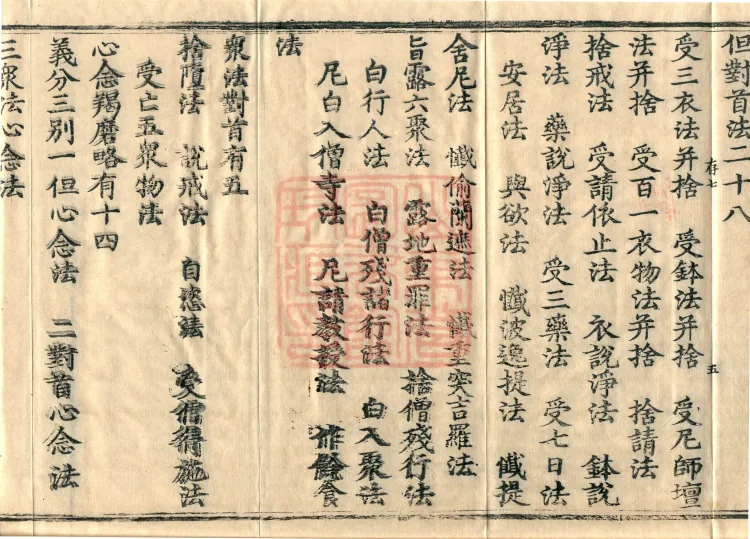 但對首法二十八
存七 五
受三衣法并捨　受鉢法并捨　受尼師壇
法并捨　受百一衣物法并捨　捨請法
捨戒法　受請依止法　衣說淨法　鉢說
淨法　藥說淨法　受三藥法　受七日法
安居法　與欲法　懺波逸提法　懺提
舍尼法　懺偷蘭遮法　懺重突吉羅法
旨露六聚法　露地重罪法　捨僧殘行法
白行人法　白僧殘諸行法　白入聚法
尼白入僧寺法　尼請教授法　作餘食
法
衆法對首有五
捨墮法　說戒法　自恣法　受僧得施法
受亡五衆物法
心念羯磨略有十四
義分三別一但心念法　二對首心念法
三衆法心念法